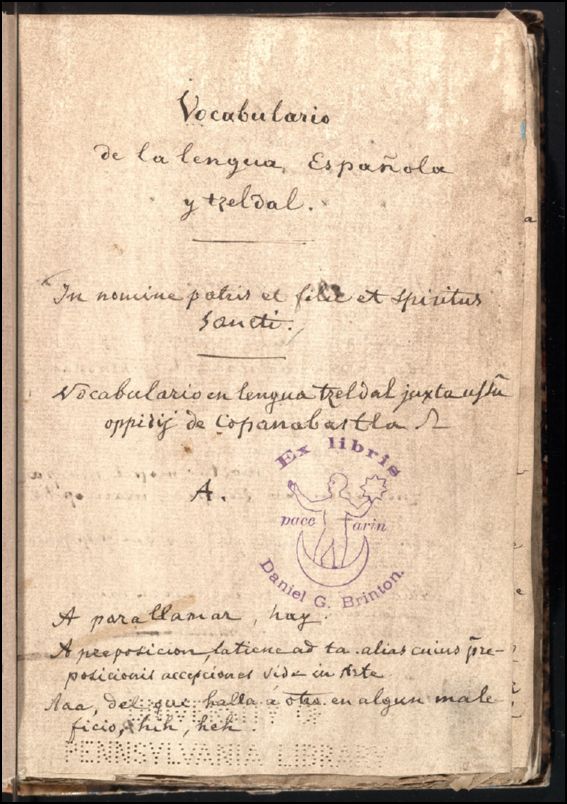 Vocabulario
de la lengua Española
y tzeldal.
In nomine patris et filii et spiritus
Sancti.
Vocabulario en lengua tzeldal juxta usũ
oppidij de Copanabastla
A.
Ex libris
pace arin
Daniel G. Brinton.
A para llamar, hay.
A preposicion, latiene ad ta. alias cuius p̃re-
posicionis accepciones vide in Arte
Aaa, del que halla á otro en algun male
ficio, hih, heh.
PENNSYLVANIA LIBRARY